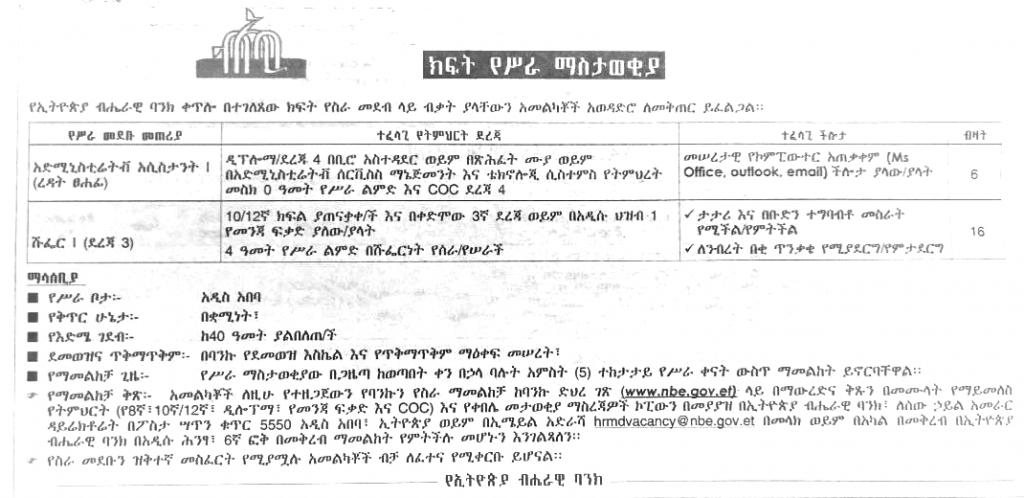 ክፍት የሥራ ማስታወቂያ
የኢትዮጵያ ብሔራዊ ባንክ ቀጥሎ በተገለጸው ክፍት የስራ መደብ ላይ ብቃት ያላቸውን አመልካቾች አወዳድሮ ለመቅጠር ይፈልጋል።
የሥራ መደቡ መጠሪያ
ተፈላጊ የትምህርት ደረጃ
ተፈላጊ ችሎታ
ብዛት
አድሚኒስቲሬትቭ አሲስታንት I
(ረዳት ፀሐፊ)
ዲፕሎማ/ደረጃ 4 በቢሮ አስተዳደር ወይም በጽሕፈት ሙያ ወይም
በአድሚኒስቲሬትቭ ሰርቪስስ ማኔጅመንት እና ቴክኖሎጂ ሲስተምስ የትምህረት
መስክ 0 ዓመት የሥራ ልምድ እና COC ደረጃ 4
መሠረታዊ የኮምፒውተር አጠቃቀም (Ms
Office, outlook, email) ችሎታ ያለው/ያላት
6
ሹፌር I (ደረጃ 3)
10/12ኛ ክፍል ያጠናቃቀ/ች እና በቀድሞው 3ኛ ደረጃ ወይም በአዲሱ ህዝብ 1
የመንጃ ፍቃድ ያለው/ያላት
4 ዓመት የሥራ ልምድ በሹፌርነት የሰራ/የሠራች
✓ ታታሪ እና በቡድን ተግባብቶ መስራት
የሚችል/የምትችል
✓ ለንብረት በቂ ጥንቃቄ የሚያደርግ/የምታደርግ
16
ማሳሰቢያ
■ የሥራ ቦታ፦ አዲስ አበባ
■ የቅጥር ሁኔታ፦ በቋሚነት፣
■ የእድሜ ገደብ፦ ከ40 ዓመት ያልበለጠ/ች
■ ደመወዝና ጥቅማጥቅም፦ በባንኩ የደመወዝ እስኬል እና የጥቅማጥቅም ማዕቀፍ መሠረት፣
■ የማመልከቻ ጊዜ፦ የሥራ ማስታወቂያው በጋዜጣ ከወጣበት ቀን በኃላ ባሉት አምስት (5) ተከታታይ የሥራ ቀናት ውስጥ ማመልከት ይኖርባቸዋል።
☞ የማመልከቻ ቅጽ፦ አመልካቾች ለዚሁ የተዘጋጀውን የባንኩን የስራ ማመልከቻ ከባንኩ ድህረ ገጽ (www.nbe.gov.et) ላይ በማውረድና ቅጹን በመሙላት የማይመለስ
የትምህርት (የ8ኛ፣10ኛ/12ኛ፣ ዲሎፕማ፣ የመንጃ ፍቃድ እና COC) እና የቀበሌ መታወቂያ ማስረጃዎች ኮፒውን በመያያዝ በኢትዮጵያ ብሔራዊ ባንክ፣ ለሰው ኃይል አመራር
ዳይሬክቶሬት በፖስታ ሣጥን ቁጥር 5550 አዲስ አበባ፣ ኢትዮጵያ ወይም በኢሜይል አድራሻ hrmdvacancy@nbe.gov.et በመላክ ወይም በአካል በመቅረብ በኢትዮጵያ
ብሔራዊ ባንክ በአዲሱ ሕንፃ፣ 6ኛ ፎቅ በመቅረብ ማመልከት የምትችሉ መሆኑን እንገልጻለን።
☞ የስራ መደቡን ዝቅተኛ መስፈርት የሚያሟሉ አመልካቾች ብቻ ለፈተና የሚቀርቡ ይሆናል።
የኢትዮጵያ ብሔራዊ ባንክ